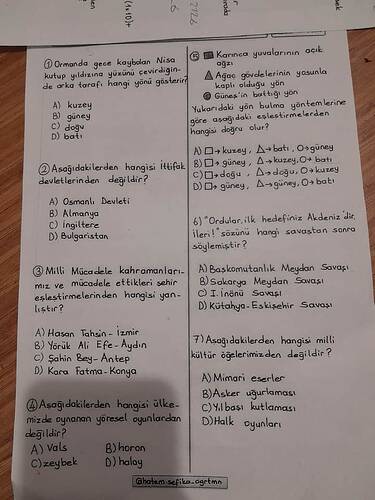 ① Ormanda gece kaybolan Nisa
kutup yıldızına yüzünü çevirdiğin-
de arka tarafı hangi yönü gösterir?
A) kuzey
B) güney
C) doğu
D) batı
② Aşağıdakilerden hangisi İttifak
devletlerinden değildir?
A) Osmanlı Devleti
B) Almanya
C) İngiltere
D) Bulgaristan
③ Milli Mücadele kahramanları-
mız ve mücadele ettikleri şehir
eşleştirmelerinden hangisi yan-
lıştır?
A) Hasan Tahsin - İzmir
B) Yörük Ali Efe - Aydın
C) Şahin Bey - Antep
D) Kara Fatma - Konya
④ Aşağıdakilerden hangisi ülke-
mizde oynanan yöresel oyunlardan
değildir?
A) Vals B) horon
C) zeybek D) halay
⑤ Karınca yuvalarının açık
ağzı
Ağaç gövdelerinin yosunla
kaplı olduğu yön
Güneş'in battığı yön
Yukarıdaki yön bulma yöntemlerine
göre aşağıdaki eşleştirmelerden
hangisi doğru olur?
A) □→kuzey, △→batı, O→güney
B) □→güney, △→kuzey, O→batı
C) □→doğu, △→doğu, O→kuzey
D) □→güney, △→güney, O→batı
6) "Ordular, ilk hedefiniz Akdeniz'dir,
İleri!" sözünü hangi savaştan sonra
söylemiştir?
A) Başkomutanlık Meydan Savaşı
B) Sakarya Meydan Savaşı
C) I. İnönü Savaşı
D) Kütahya-Eskişehir Savaşı
7) Aşağıdakilerden hangisi milli
kültür öğelerimizden değildir?
A) Mimari eserler
B) Asker uğurlaması
C) Yılbaşı kutlaması
D) Halk oyunları
@hatem.sefika_ogrtmn